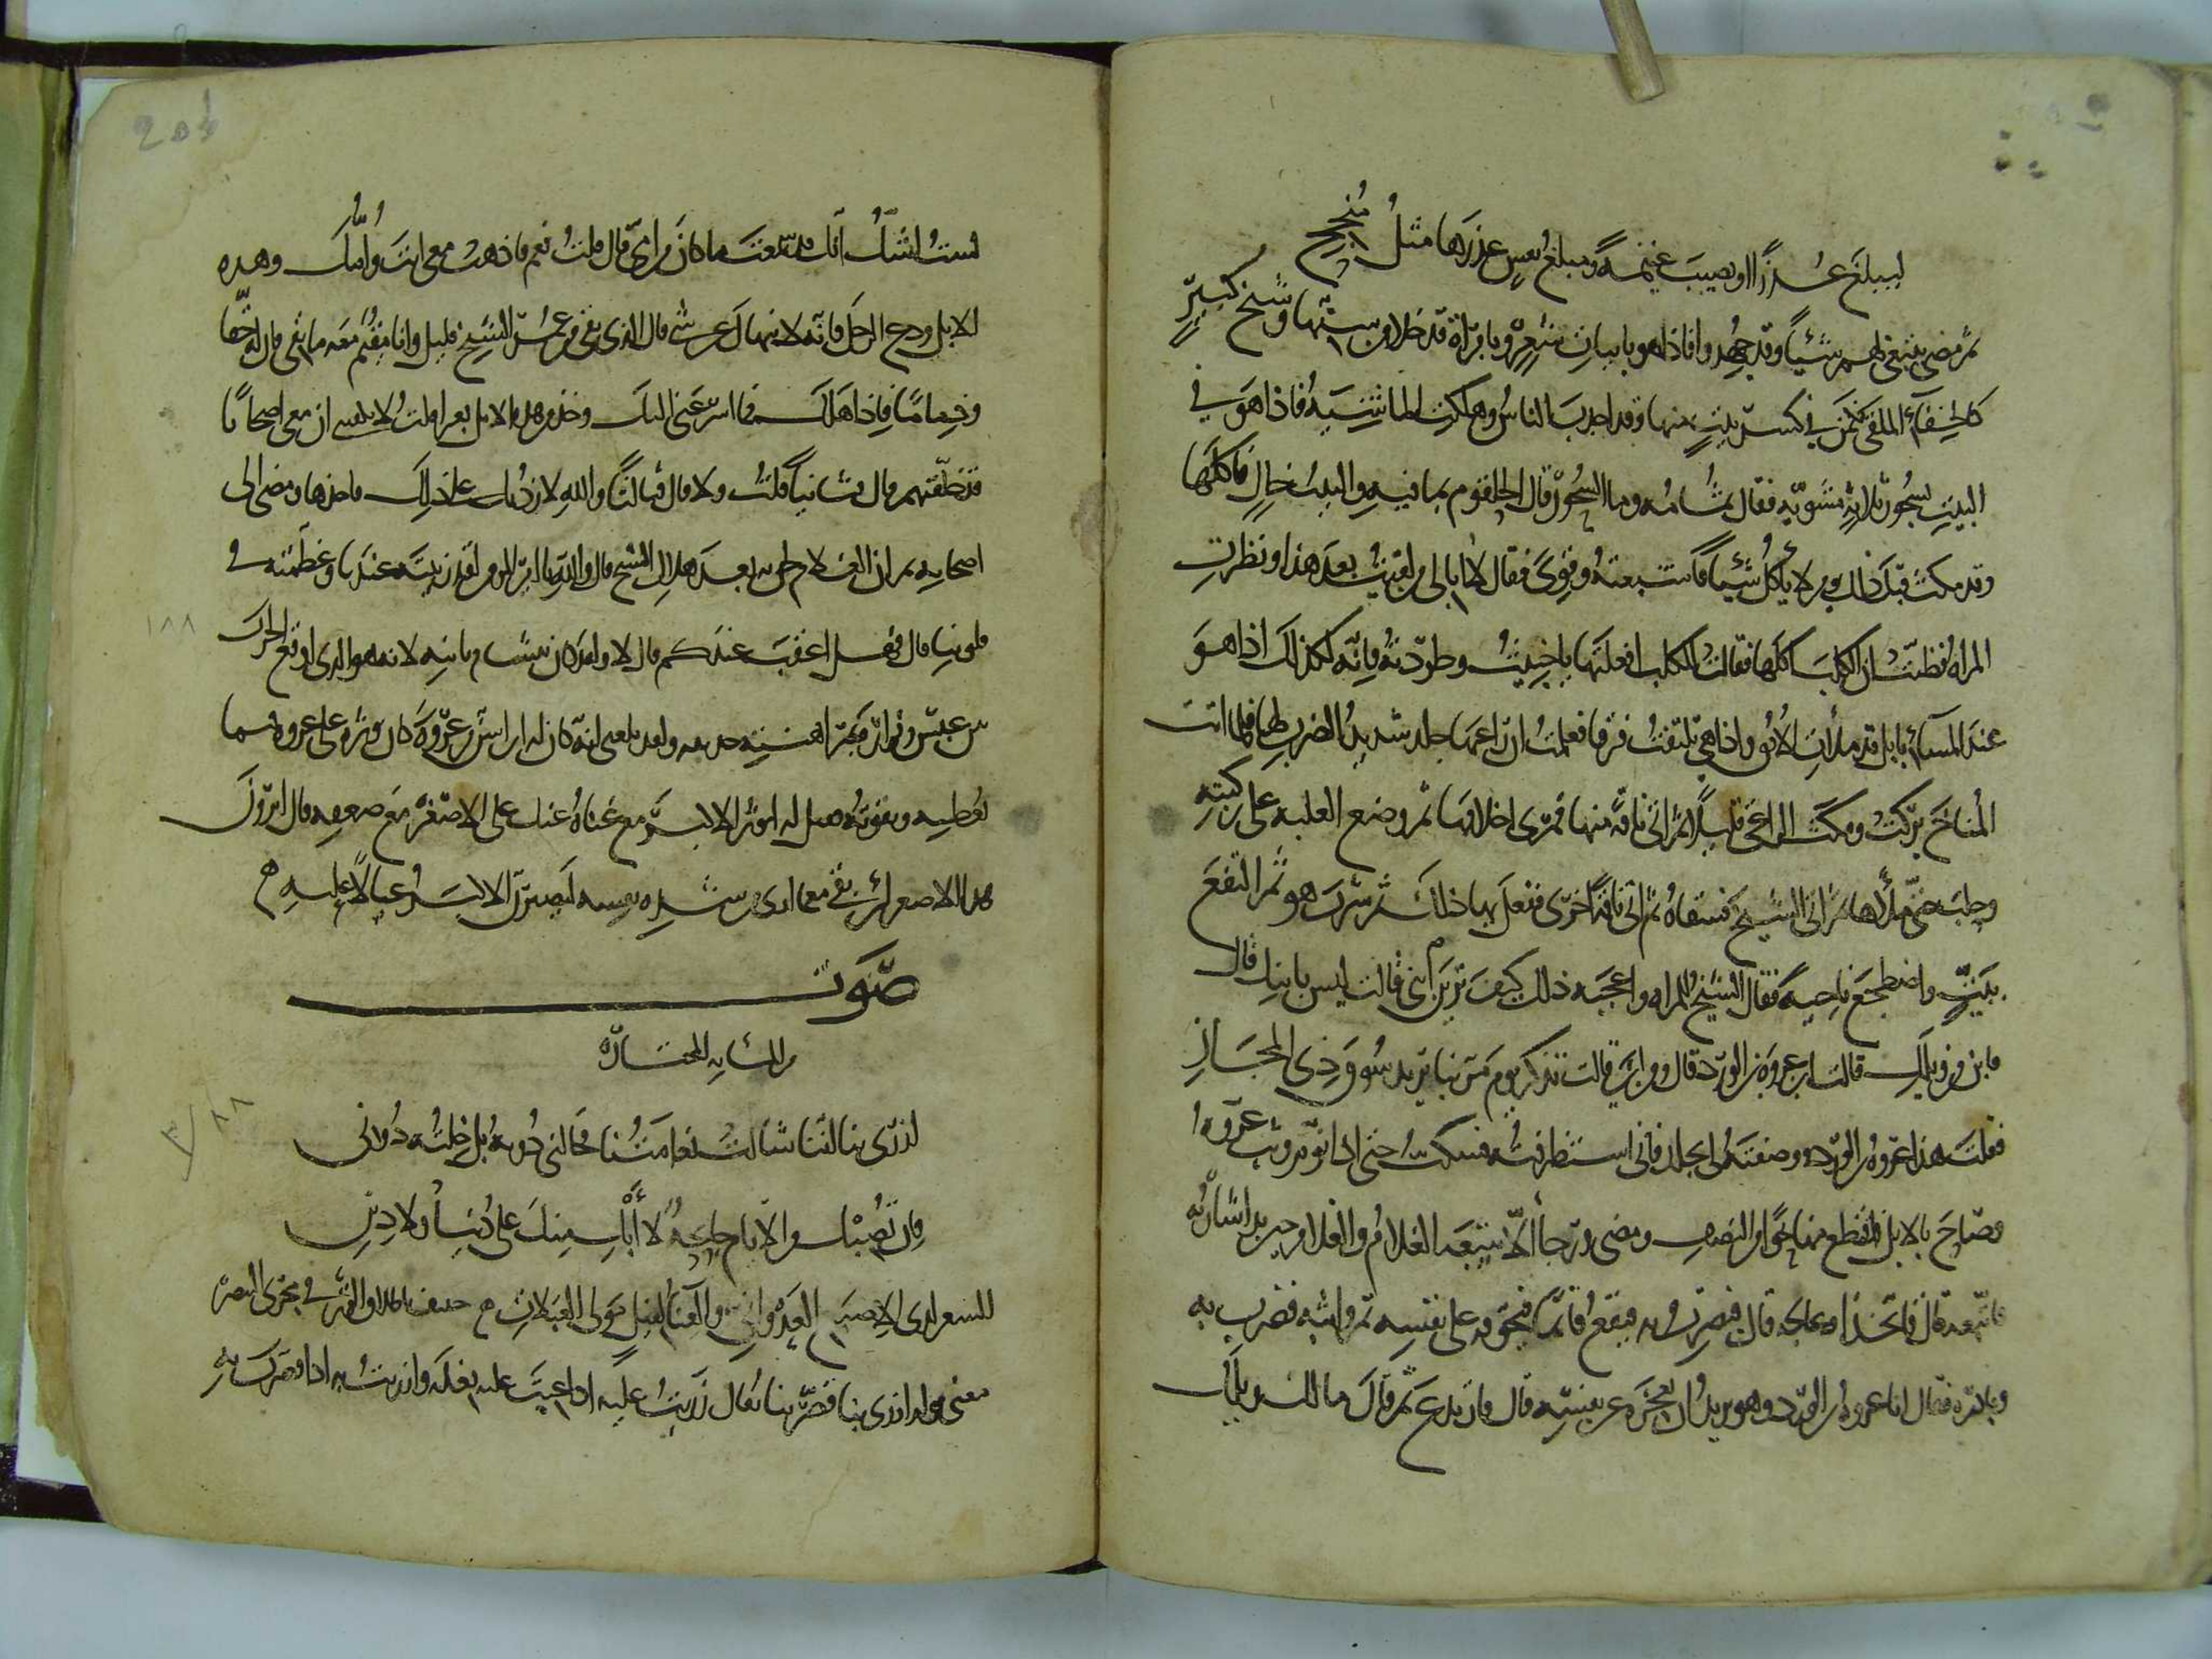 ليبلغ عذرا او يصيب غنيمة ومبلغ نفس عذرها مثل منجح
ثم مضى يبتغي لهم شيئا وقد جهدوا فاذا هو بابيات شعر وبامراة قد خلا من سنها وشيخ كبير
كالحفاء الملقى فكمن في كسر بيت منها وقد اجدب الناس وهلكت الماشية فاذا هو في
البيت بسحور ثلاثة مشوية فقال ثمامة وما السحور قال الحلقوم بما فيه والبيت خال فاكلها
وقد مكث قبل ذلك يومين لا يأكل شيئا فاشبعته وقوي فقال لا ابالي من لقيت بعد هذا ونظرت
المراة فظنت ان الكلب اكلها فقالت للكلب افعلتها يا خبيث وطردته فانه لكذلك اذا هو
عند المساء بابل قد ملأت الافق واذا هي تلتفت فرقا فعلمت ان راعيها جلد شديد الضرب لها فلما اتت
المناخ بركت ومكث الراعي قليلا ثم اتى ناقة منها فمرى اخلافها ثم وضع العلبة على ركبتيه
وحلب حتى ملأها ثم اتى الشيخ فسقاه ثم اتى ناقة اخرى ففعل بها ذلك ثم شرب هو ثم التفع
بثوب واضطجع ناحية فقال الشيخ للمراة واعجبه ذلك كيف ترين ابني قالت ليس بابنك قال
فابن من ويلك قالت ابن عروة بن الورد قال ومن اين قالت تذكر يوم مر بنا يريد سوق ذي المجاز
فقلت هذا عروة بن الورد ووصفته لي بجلد فاني استظرفته فسكت حتى اذا نوم وثب عروة
وصاح بالابل فاقتطع منها نحوا من النصف ومضى ورجا الا يتبعه الغلام والغلام حين بدا شاربه
فاتبعه قال فاتخذا وعالجه قال فضرب به فيقع قائما فتخوفه على نفسه ثم واثبه فضرب به
وبادره فقال انا عروة بن الورد وهو يريد ان يعجزه عن نفسه قال فارتدع ثم قال ما لك ويلك
لست اشك انك قد سمعت ما كان من امي قال قلت نعم فاذهب معي انت وامك وهذه
الابل ودع الرجل فانه لا ينهاك عن شي قال الذي بقي من عمر الشيخ قليل وانا مقيم معه ما بقي فان له حقا
وذماما فاذا هلك فما اسرعني اليك وخذ من هذه الابل بعيرا قلت لا يكفيني ان معي اصحابا
قد خلفتهم قال فثانيا قلت ولا قال فثالثا والله لا زدتك على ذلك فاخذها ومضى الى
اصحابه ثم ان الغلام لحق به بعد هلاك الشيخ قال والله يا امير المومنين لقد زينته عندنا وعظمته في
قلوبنا قال فهل اعقب عندكم قال لا ولقد كنا نتشاءم بابيه لانه هو الذي اوقع الحرب
بين عبس وفزارة بمراهنته حذيفة ولقد بلغني انه كان له ابن اسن من عروة وكان يؤثره على عروة فيما
يعطيه ويقربه فقيل له اتوثر الاكبر مع غناه عنك على الاصغر مع ضعفه قال اترون
هذا الاصغر لئن بقي مع ما ارى من شدة نفسه ليصيرن الاكبر عيالا عليه
صوت
من المائة المختارة
ازرى بنا اننا شالت نعامتنا فخالني دونه بل خلته دوني
فان تصبك من الايام جائحة لا ابك منك على دنيا ولا دين
الشعر لذي الاصبع العدواني والغناء لفيل مولى العبلات خفيف باطلاق الوتر في مجرى البنصر
معنى قوله ازرى بنا قصر بنا يقال زريت عليه اذا عبت عليه فعله وازريت به اذا قصرت به
١٨٨